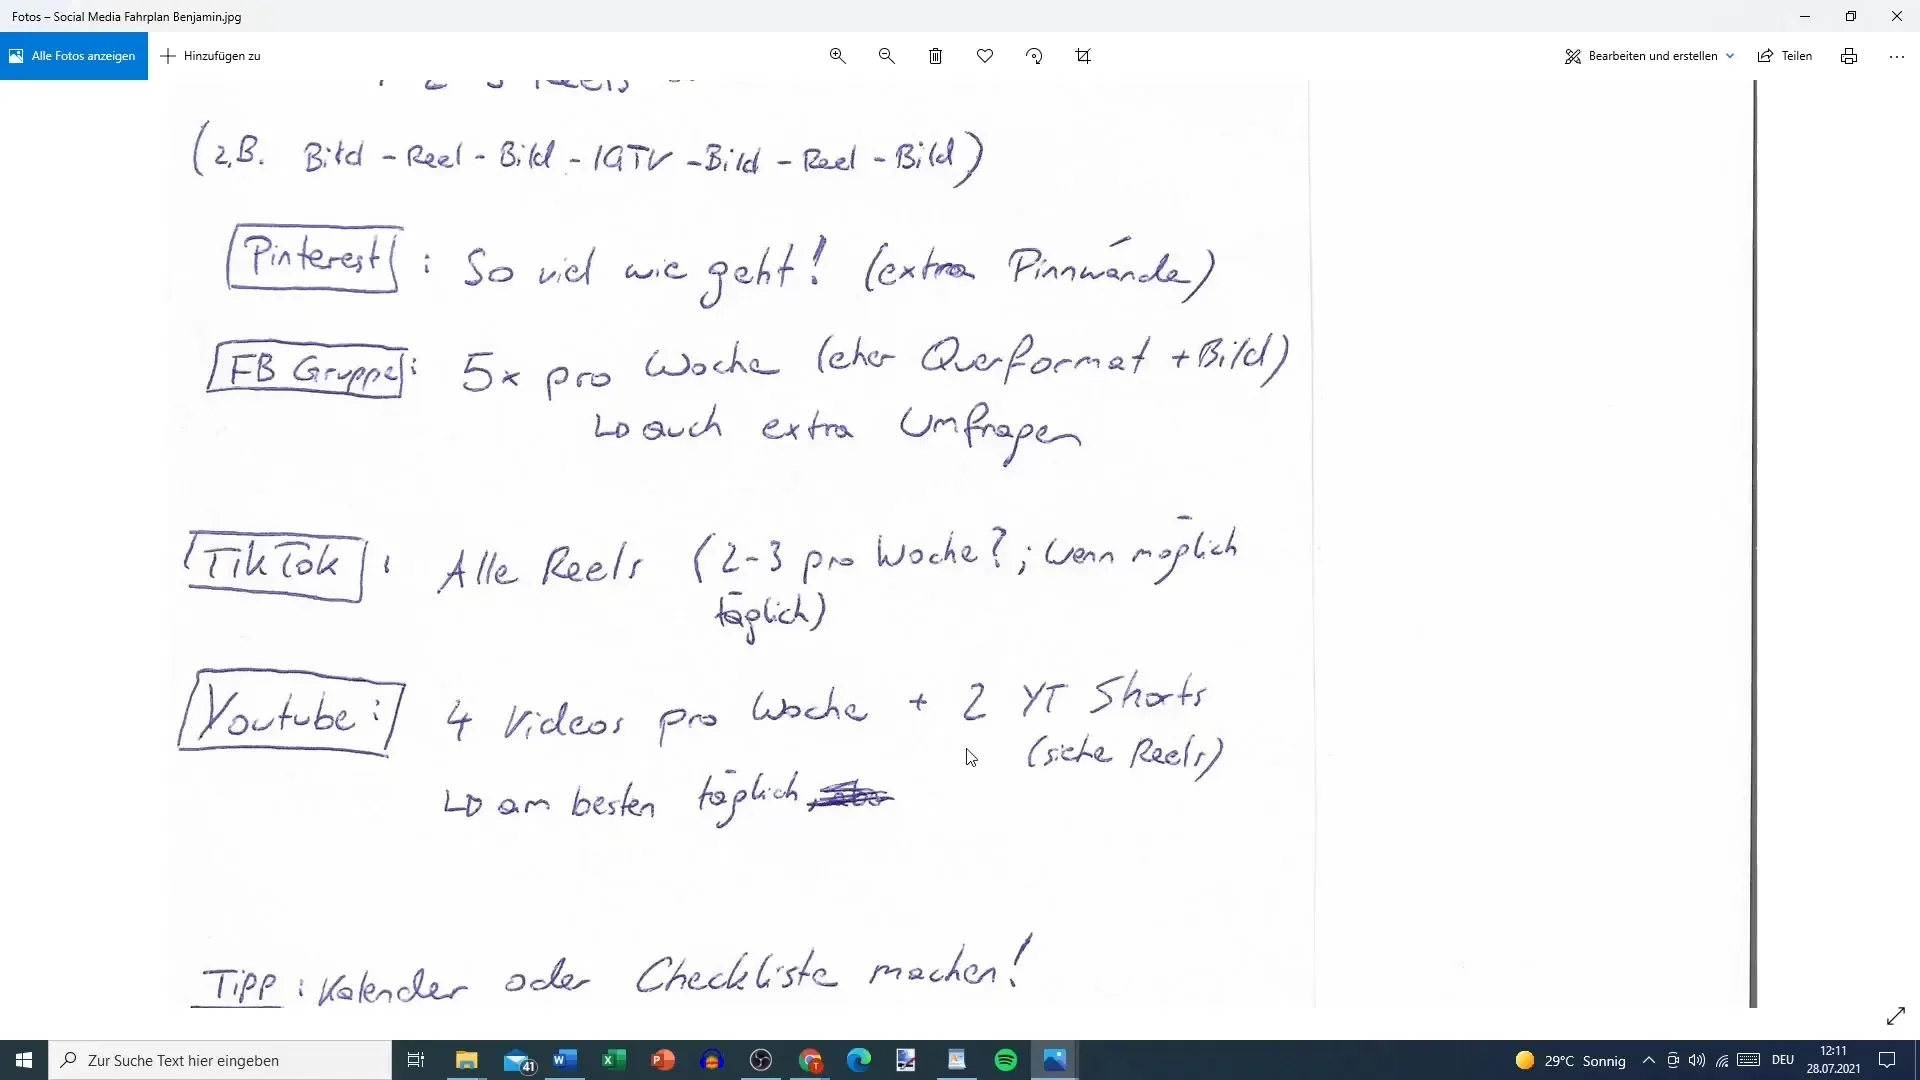 Fotos – Social Media Fahrplan Benjamin.jpg
Alle Fotos anzeigen
Hinzufügen zu
Bearbeiten und erstellen
Teilen
2-3 Reels
(z.B. Bild - Reel - Bild - IGTV - Bild - Reel - Bild)
Pinterest : So viel wie geht! (extra Pinnwände)
FB Gruppe : 5x pro Woche (eher Querformat + Bild)
auch extra Umfragen
TikTok : Alle Reels (2-3 pro Woche?; wenn möglich
täglich)
Youtube : 4 Videos pro Woche + 2 YT Shorts
(siehe Reels)
am besten täglich
Tipp : Kalender oder Checkliste machen!
Zur Suche Text hier eingeben
41
29°C Sonnig
DEU
12:11
28.07.2021